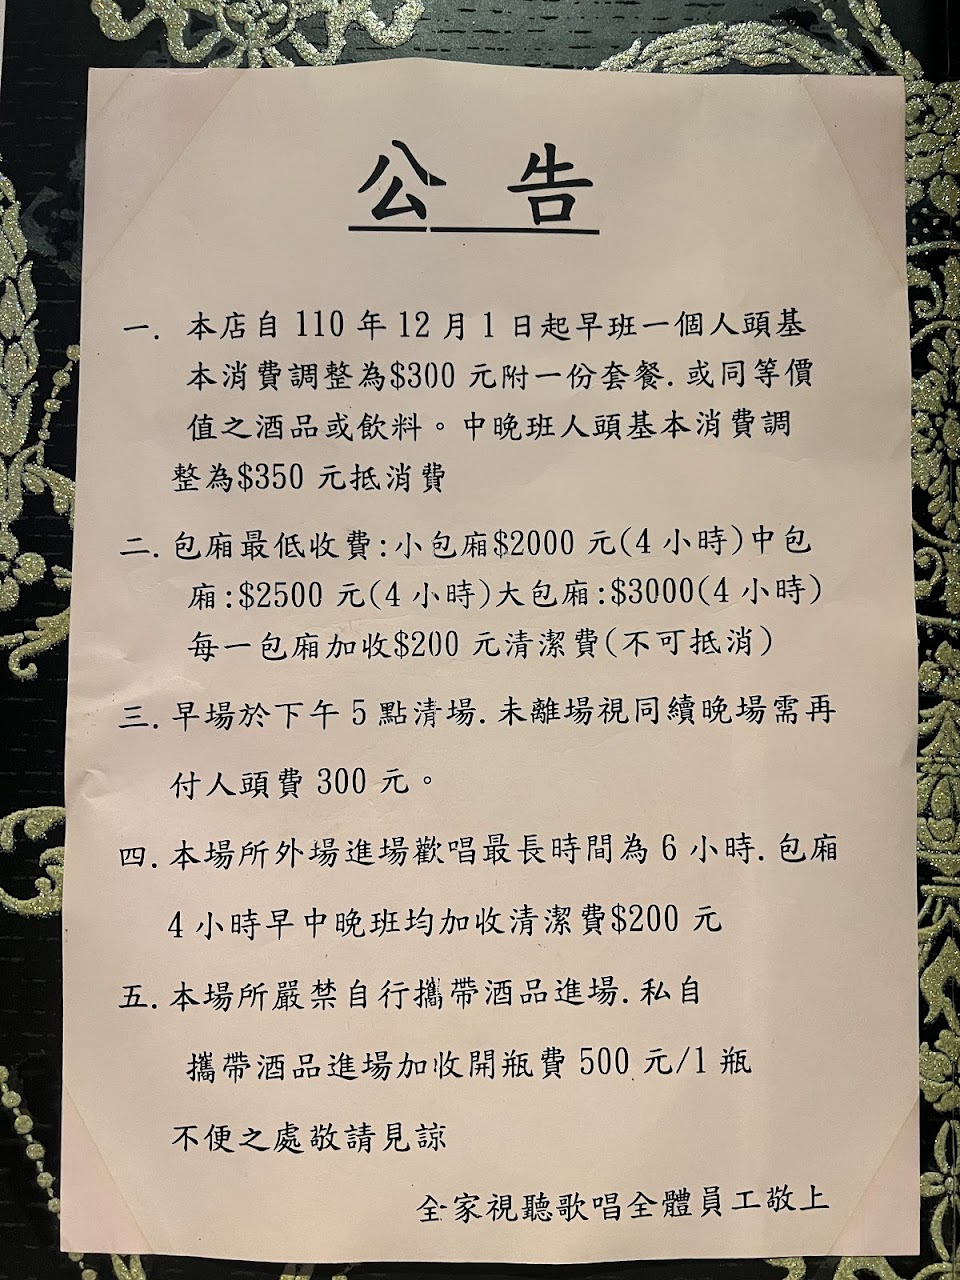 公告
一. 本店自 110 年 12 月 1 日起早班一個人頭基
本消費調整為$300 元附一份套餐. 或同等價
值之酒品或飲料。中晚班人頭基本消費調
整為$350 元抵消費
二. 包廂最低收費:小包廂$2000 元(4 小時)中包
廂:$2500 元(4 小時)大包廂:$3000(4 小時)
每一包廂加收$200 元清潔費(不可抵消)
三. 早場於下午 5 點清場. 未離場視同續晚場需再
付人頭費 300 元。
四. 本場所外場進場歡唱最長時間為 6 小時. 包廂
4 小時早中晚班均加收清潔費$200 元
五. 本場所嚴禁自行攜帶酒品進場. 私自
攜帶酒品進場加收開瓶費 500 元/1 瓶
不便之處敬請見諒
全家視聽歌唱全體員工敬上